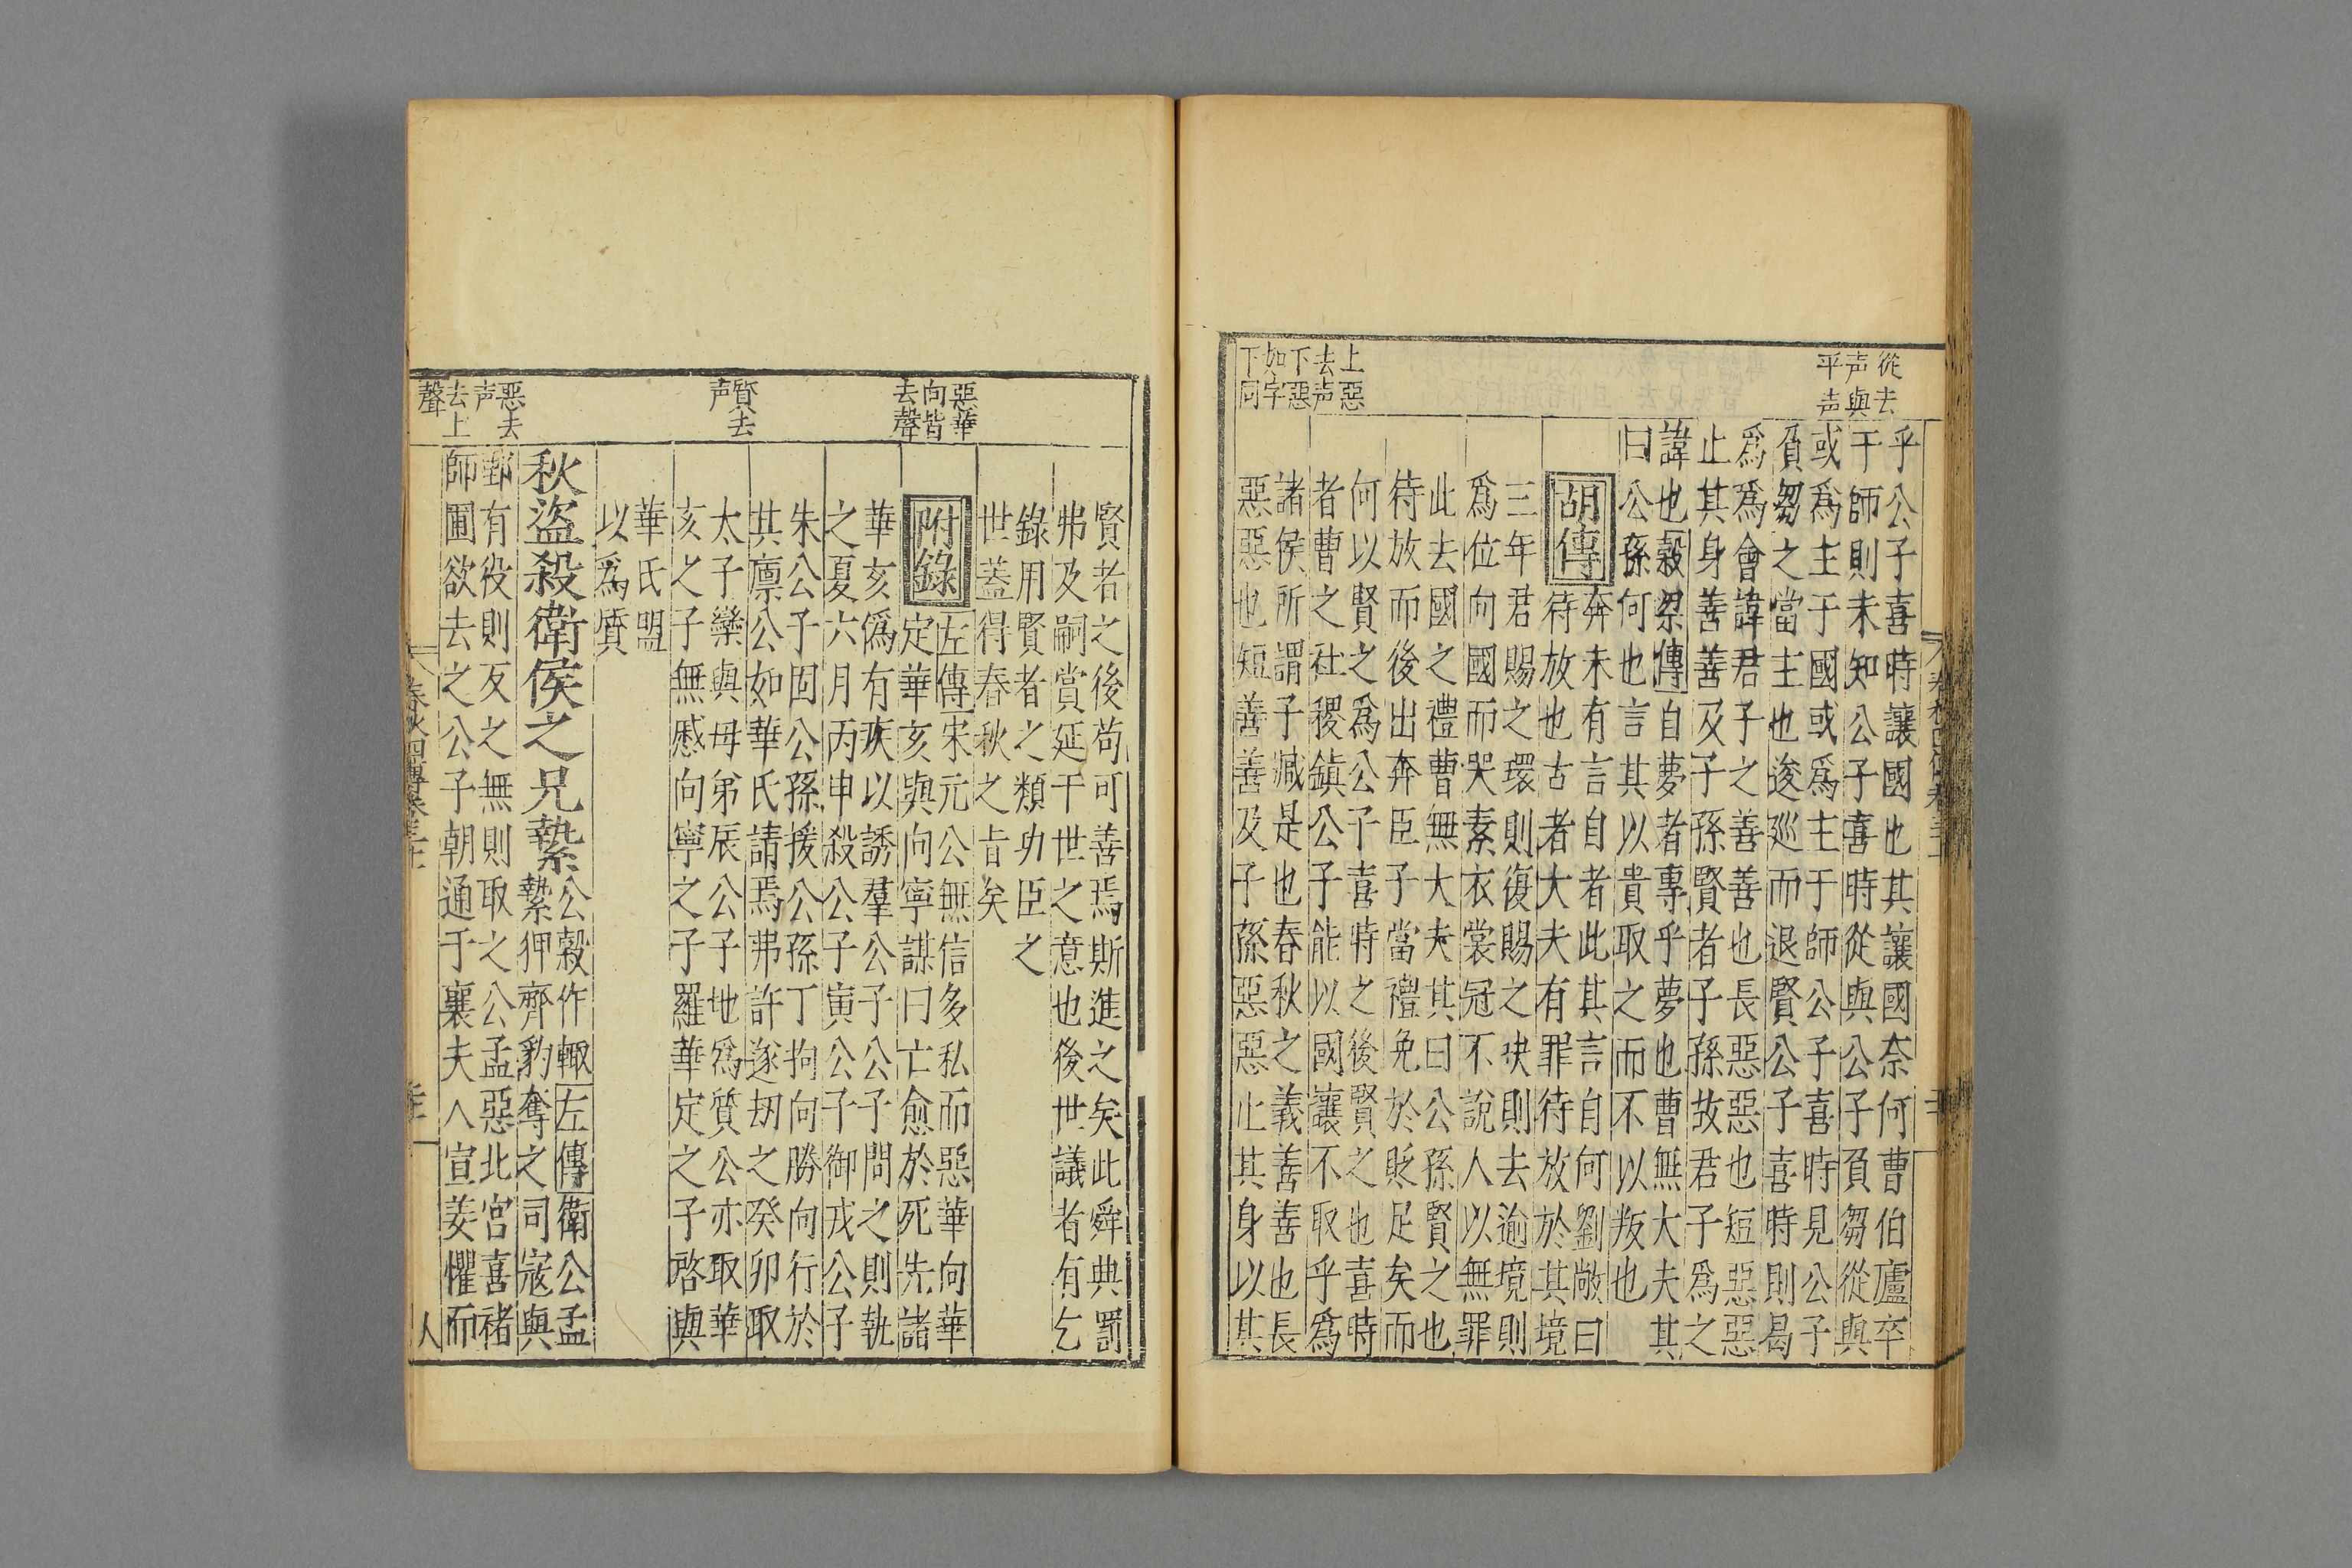 從去
声與
平声
上惡
去声
下惡
如字
下同
乎公子喜時讓國也其讓國奈何曹伯廬卒
于師則未知公子喜時從與公子負芻從與
或爲主于國或爲主于師公子喜時見公子
負芻之當主也逡巡而退賢公子喜時則曷
爲爲會諱君子之善善也長惡惡也短惡惡
止其身善善及子孫賢者子孫故君子爲之
諱也穀梁傳自夢者專乎夢也曹無大夫其
曰公孫何也言其以貴取之而不以叛也
胡傳奔未有言自者此其言自何劉敞曰
待放也古者大夫有罪待放於其境
三年君賜之環則復賜之玦則去逾境則
爲位向國而哭素衣裳冠不說人以無罪
此去國之禮曹無大夫其曰公孫賢之也
待放而後出奔臣子當禮免於貶足矣而
何以賢之爲公子喜時之後賢之也喜時
者曹之社稷鎮公子能以國讓不取乎爲
諸侯所謂子臧是也春秋之義善善也長
惡惡也短善善及子孫惡惡止其身以其
賢者之後苟可善焉斯進之矣此舜典罰
弗及嗣賞延于世之意也後世議者有乞
錄用賢者之類功臣之
世蓋得春秋之旨矣
惡華
向皆
去聲
賢去
声
惡去
声
去上
聲
附錄左傳宋元公無信多私而惡華向華
定華亥與向寧謀曰亡愈於死先諸
華亥偽有疾以誘羣公子公子問之則執
之夏六月丙申殺公子寅公子御戎公子
朱公子固公孫援公孫丁拘向勝向行於
其廩公如華氏請焉弗許遂刼之癸卯取
太子欒與母弟辰公子地爲質公亦取華
亥之子無慼向寧之子羅華定之子啓與
華氏盟
以爲質
秋盜殺衛侯之兄縶公穀作輒左傳衛公孟
縶狎齊豹奪之司寇與
鄄有役則反之無則取之公孟惡北宮喜禇
師圃欲去之公子朝通于襄夫人宣姜懼而